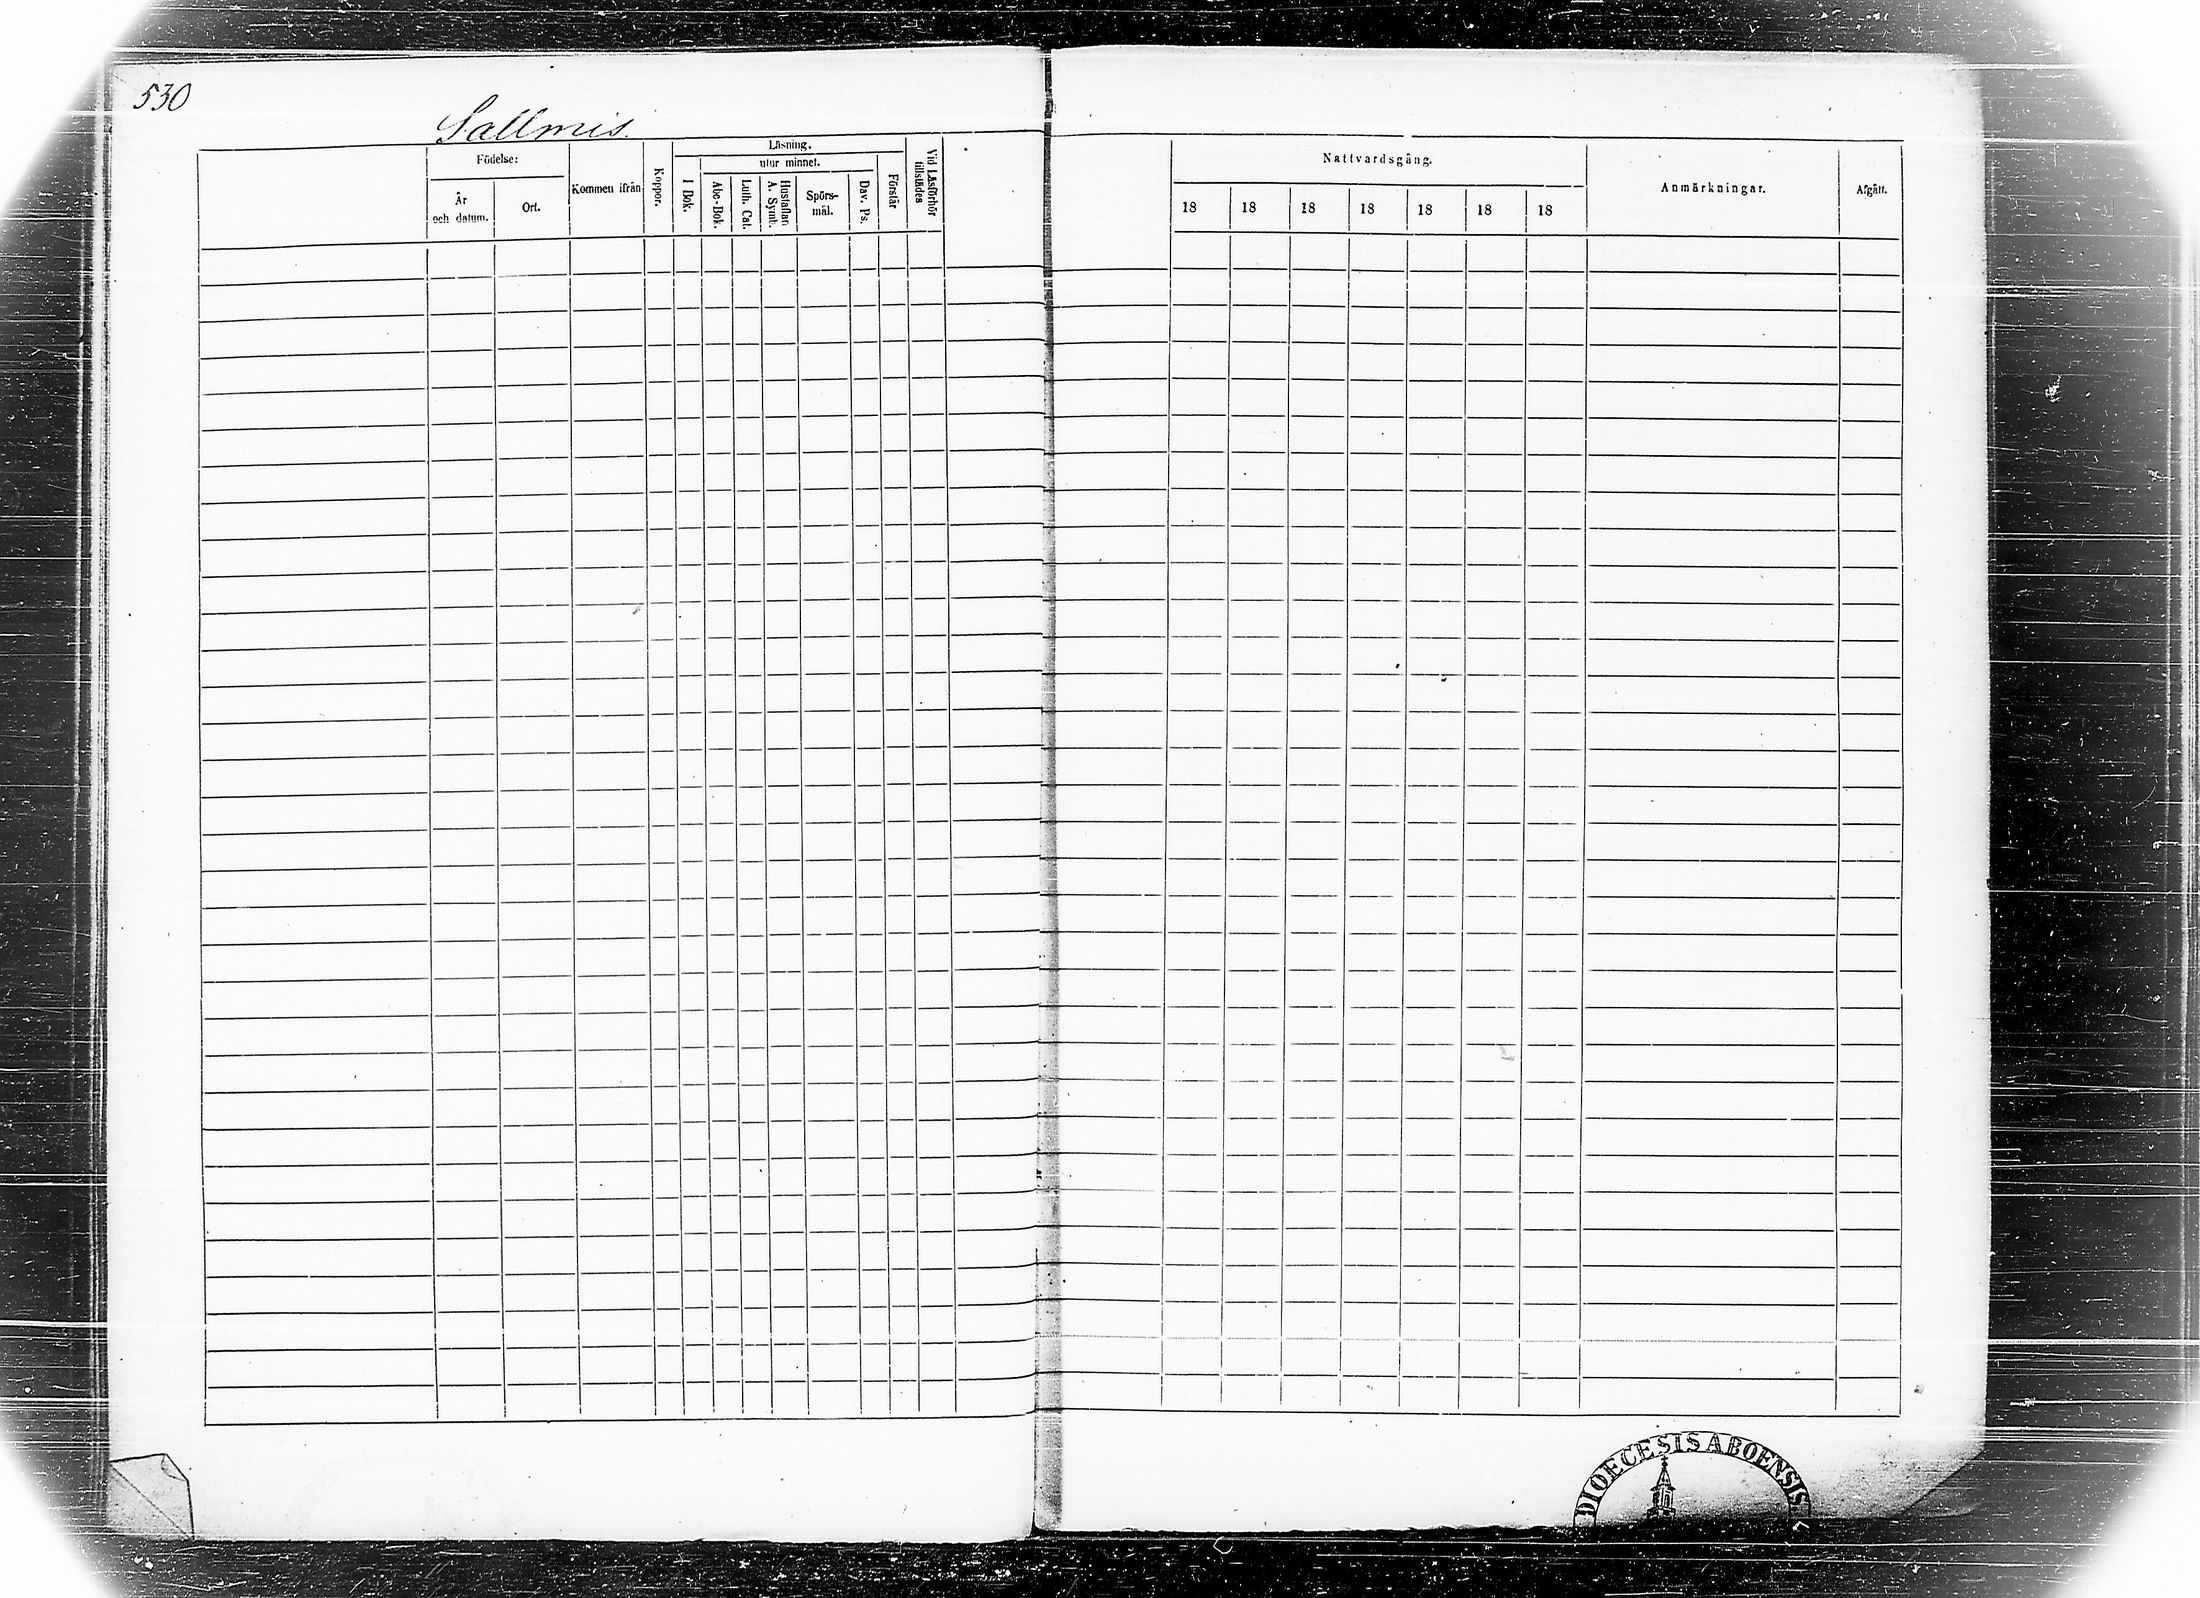 530
Sallmis.
Födelse:
År
och datum.
Ort.
Kommen ifrån
Koppor.
Läsning.
utur minnet.
I Bok.
Abc-Bok.
Luth. Cat.
Hustaflan
A. Symb.
Spörs-
mål.
Dav. Ps.
Förstår
Vid Läsförhör
tillstädes
Nattvardsgång.
18 18 18 18 18 18 18
Anmärkningar.
Afgått.
DIOECESIS ABOENSIS